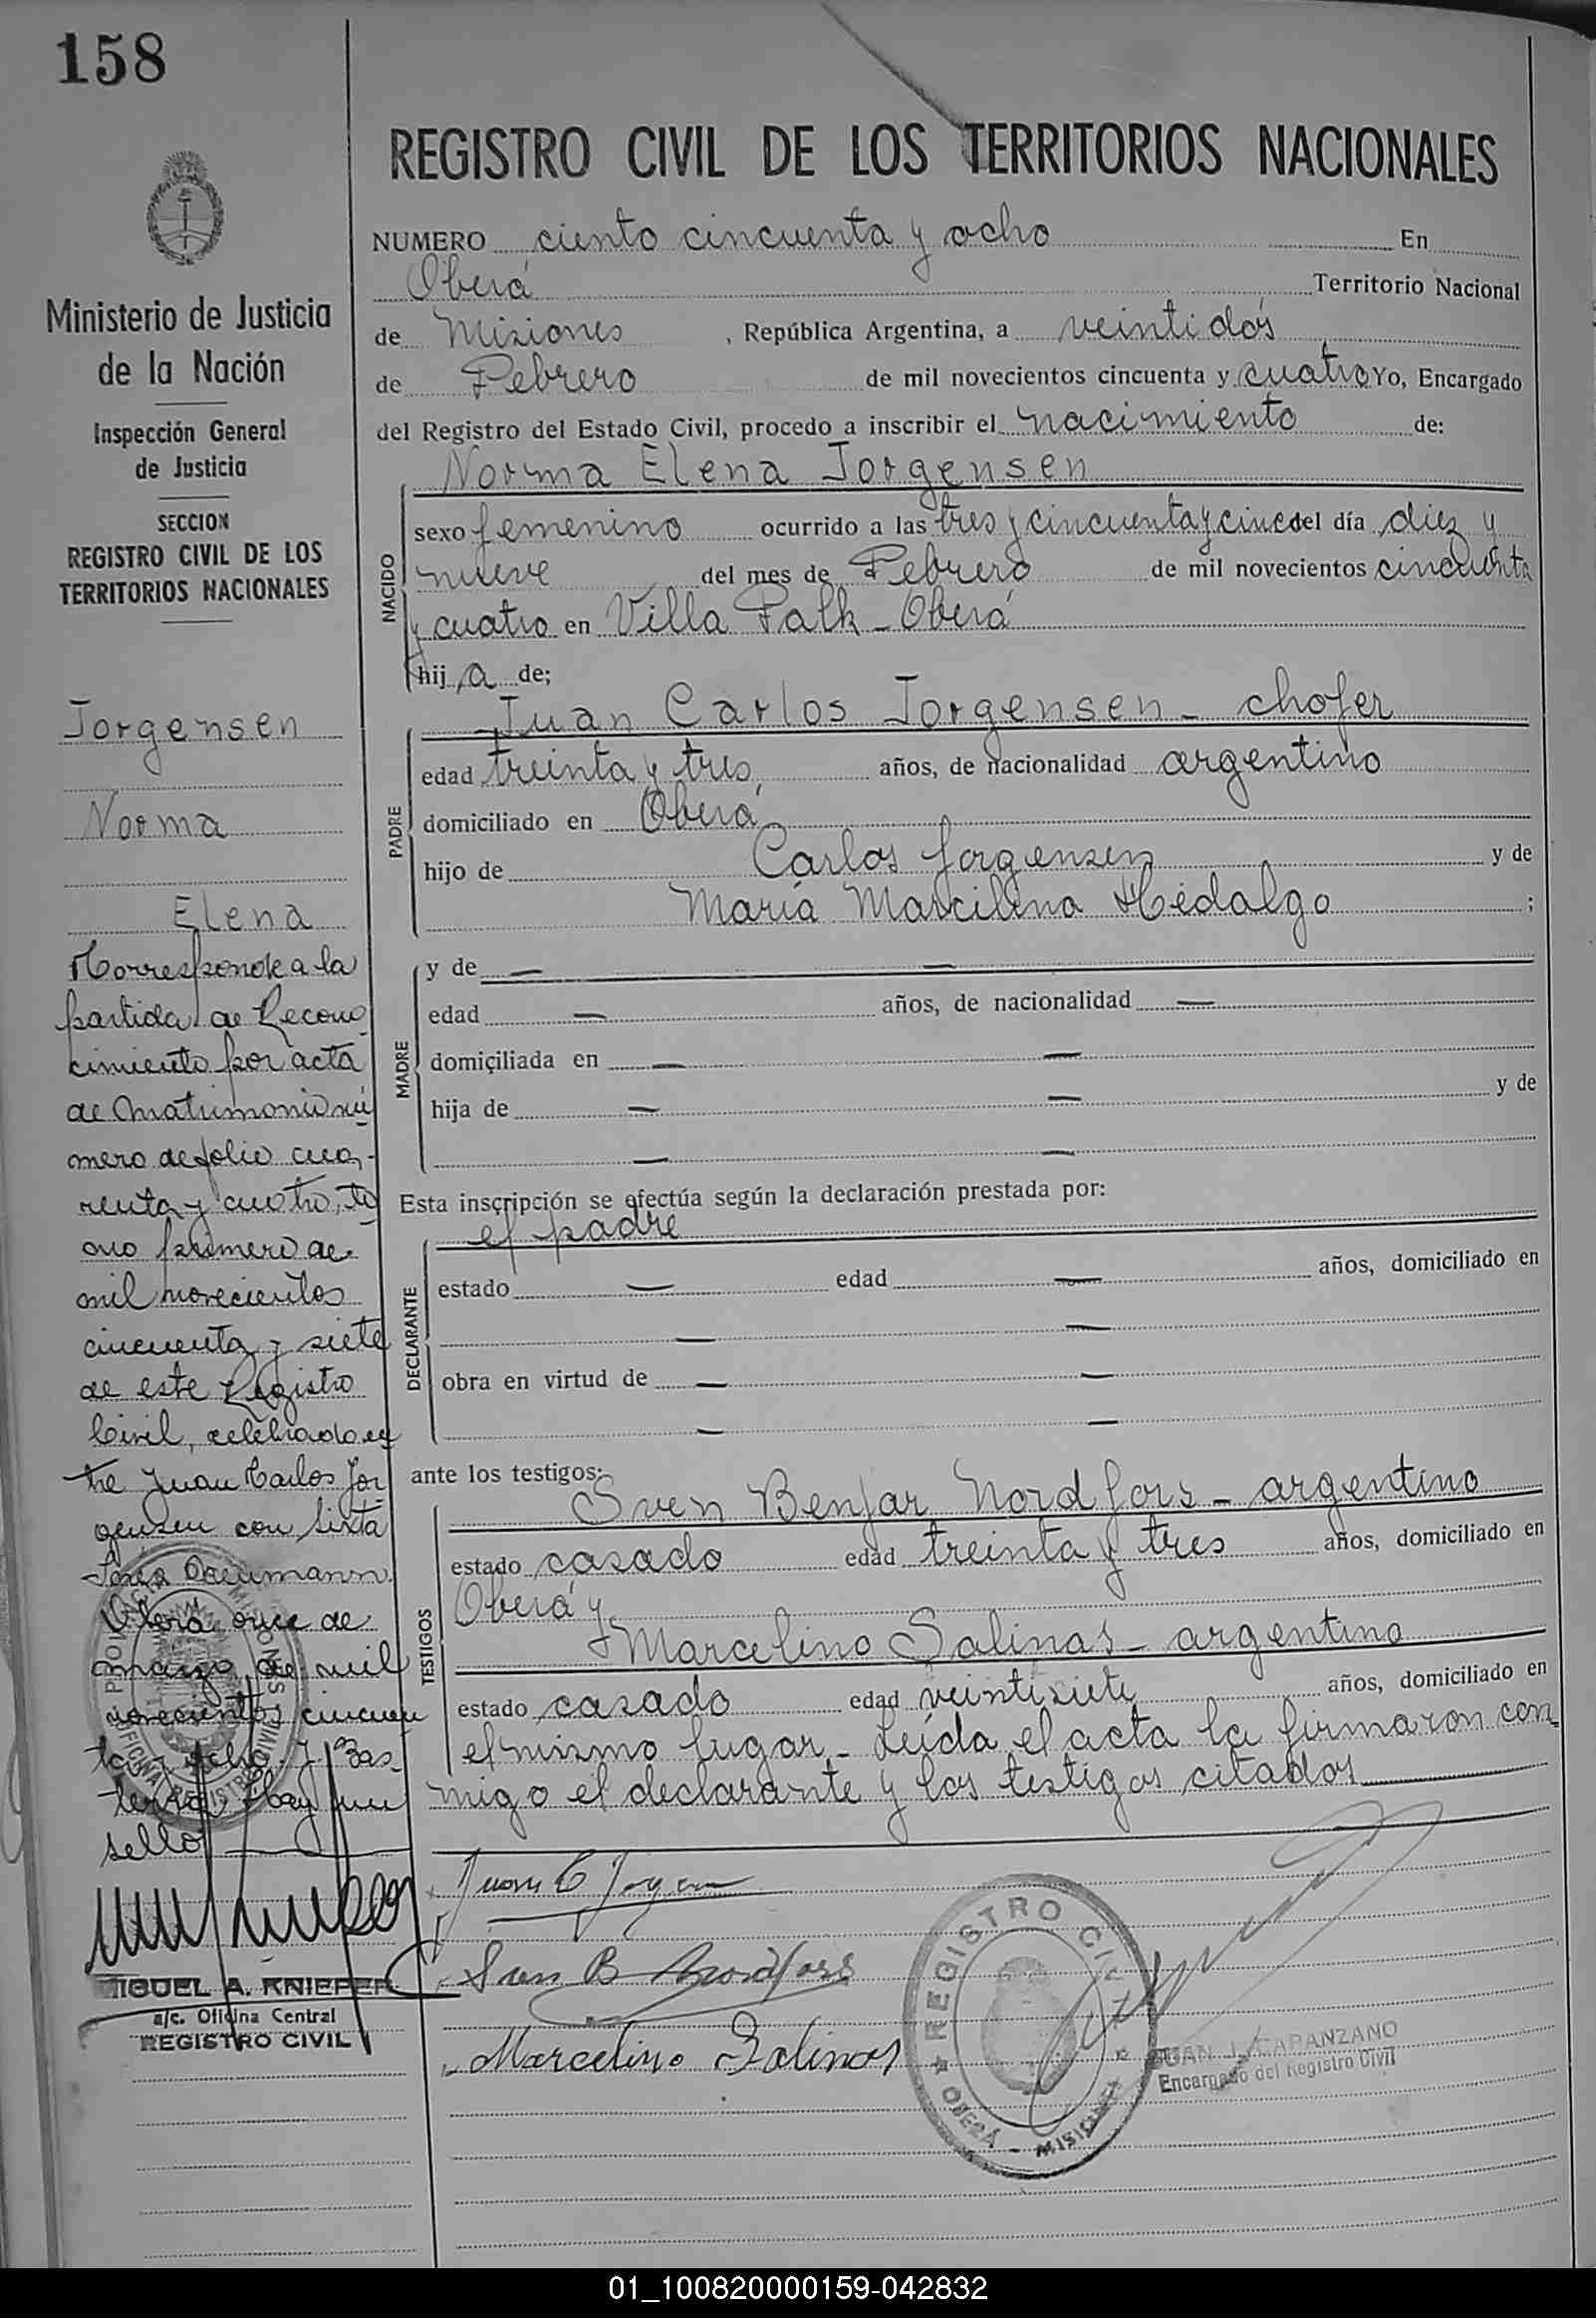 158
REGISTRO CIVIL DE LOS TERRITORIOS NACIONALES
Ministerio de Justicia
de la Nación
Inspección General
de Justicia
SECCION
REGISTRO CIVIL DE LOS
TERRITORIOS NACIONALES
Jorgensen
Norma
Elena
Corresponde a la
partida de Recono
cimiento por acta
de Matrimonio nú
mero de folio cua-
renta y cuatro, to
mo primero de
mil novecientos
cincuenta y siete
de este Registro
Civil, celebrado en
tre Juan Carlos Jor
gensen con Sixta
Neumann.
Oberá once de
marzo de mil
novecientos cincuen
ta y ocho.
sello
MIGUEL A. KNIEPER
a/c. Oficina Central
REGISTRO CIVIL
NUMERO ciento cincuenta y ocho En
Oberá Territorio Nacional
de Misiones , República Argentina, a veintidós
de Febrero de mil novecientos cincuenta y cuatro Yo, Encargado
del Registro del Estado Civil, procedo a inscribir el nacimiento de:
Norma Elena Jorgensen
NACIDO
sexo femenino ocurrido a las tres y cincuenta y cinco del día diez y
nueve del mes de Febrero de mil novecientos cincuenta
y cuatro en Villa Falk - Oberá
hij a de;
PADRE
Juan Carlos Jorgensen - chofer
edad treinta y tres años, de nacionalidad argentino
domiciliado en Oberá
hijo de Carlos Jorgensen y de
María Marcilina Hidalgo ;
MADRE
y de — —
edad — años, de nacionalidad —
domiciliada en — —
hija de — — y de
— —
Esta inscripción se efectúa según la declaración prestada por:
DECLARANTE
el padre
estado — edad — años, domiciliado en
— —
obra en virtud de — —
— —
ante los testigos:
TESTIGOS
Sven Benjar Nordfors - argentino
estado casado edad treinta y tres años, domiciliado en
Oberá y
Marcelino Salinas - argentino
estado casado edad veintisiete años, domiciliado en
el mismo lugar.- Leída el acta la firmaron con-
migo el declarante y los testigos citados
Juan C Jorgen
Sven B Nordfors
Marcelino Salinas
REGISTRO CIVIL
OBERÁ - MISIONES
JUAN J. CAPANZANO
Encargado del Registro Civil
01_100820000159-042832